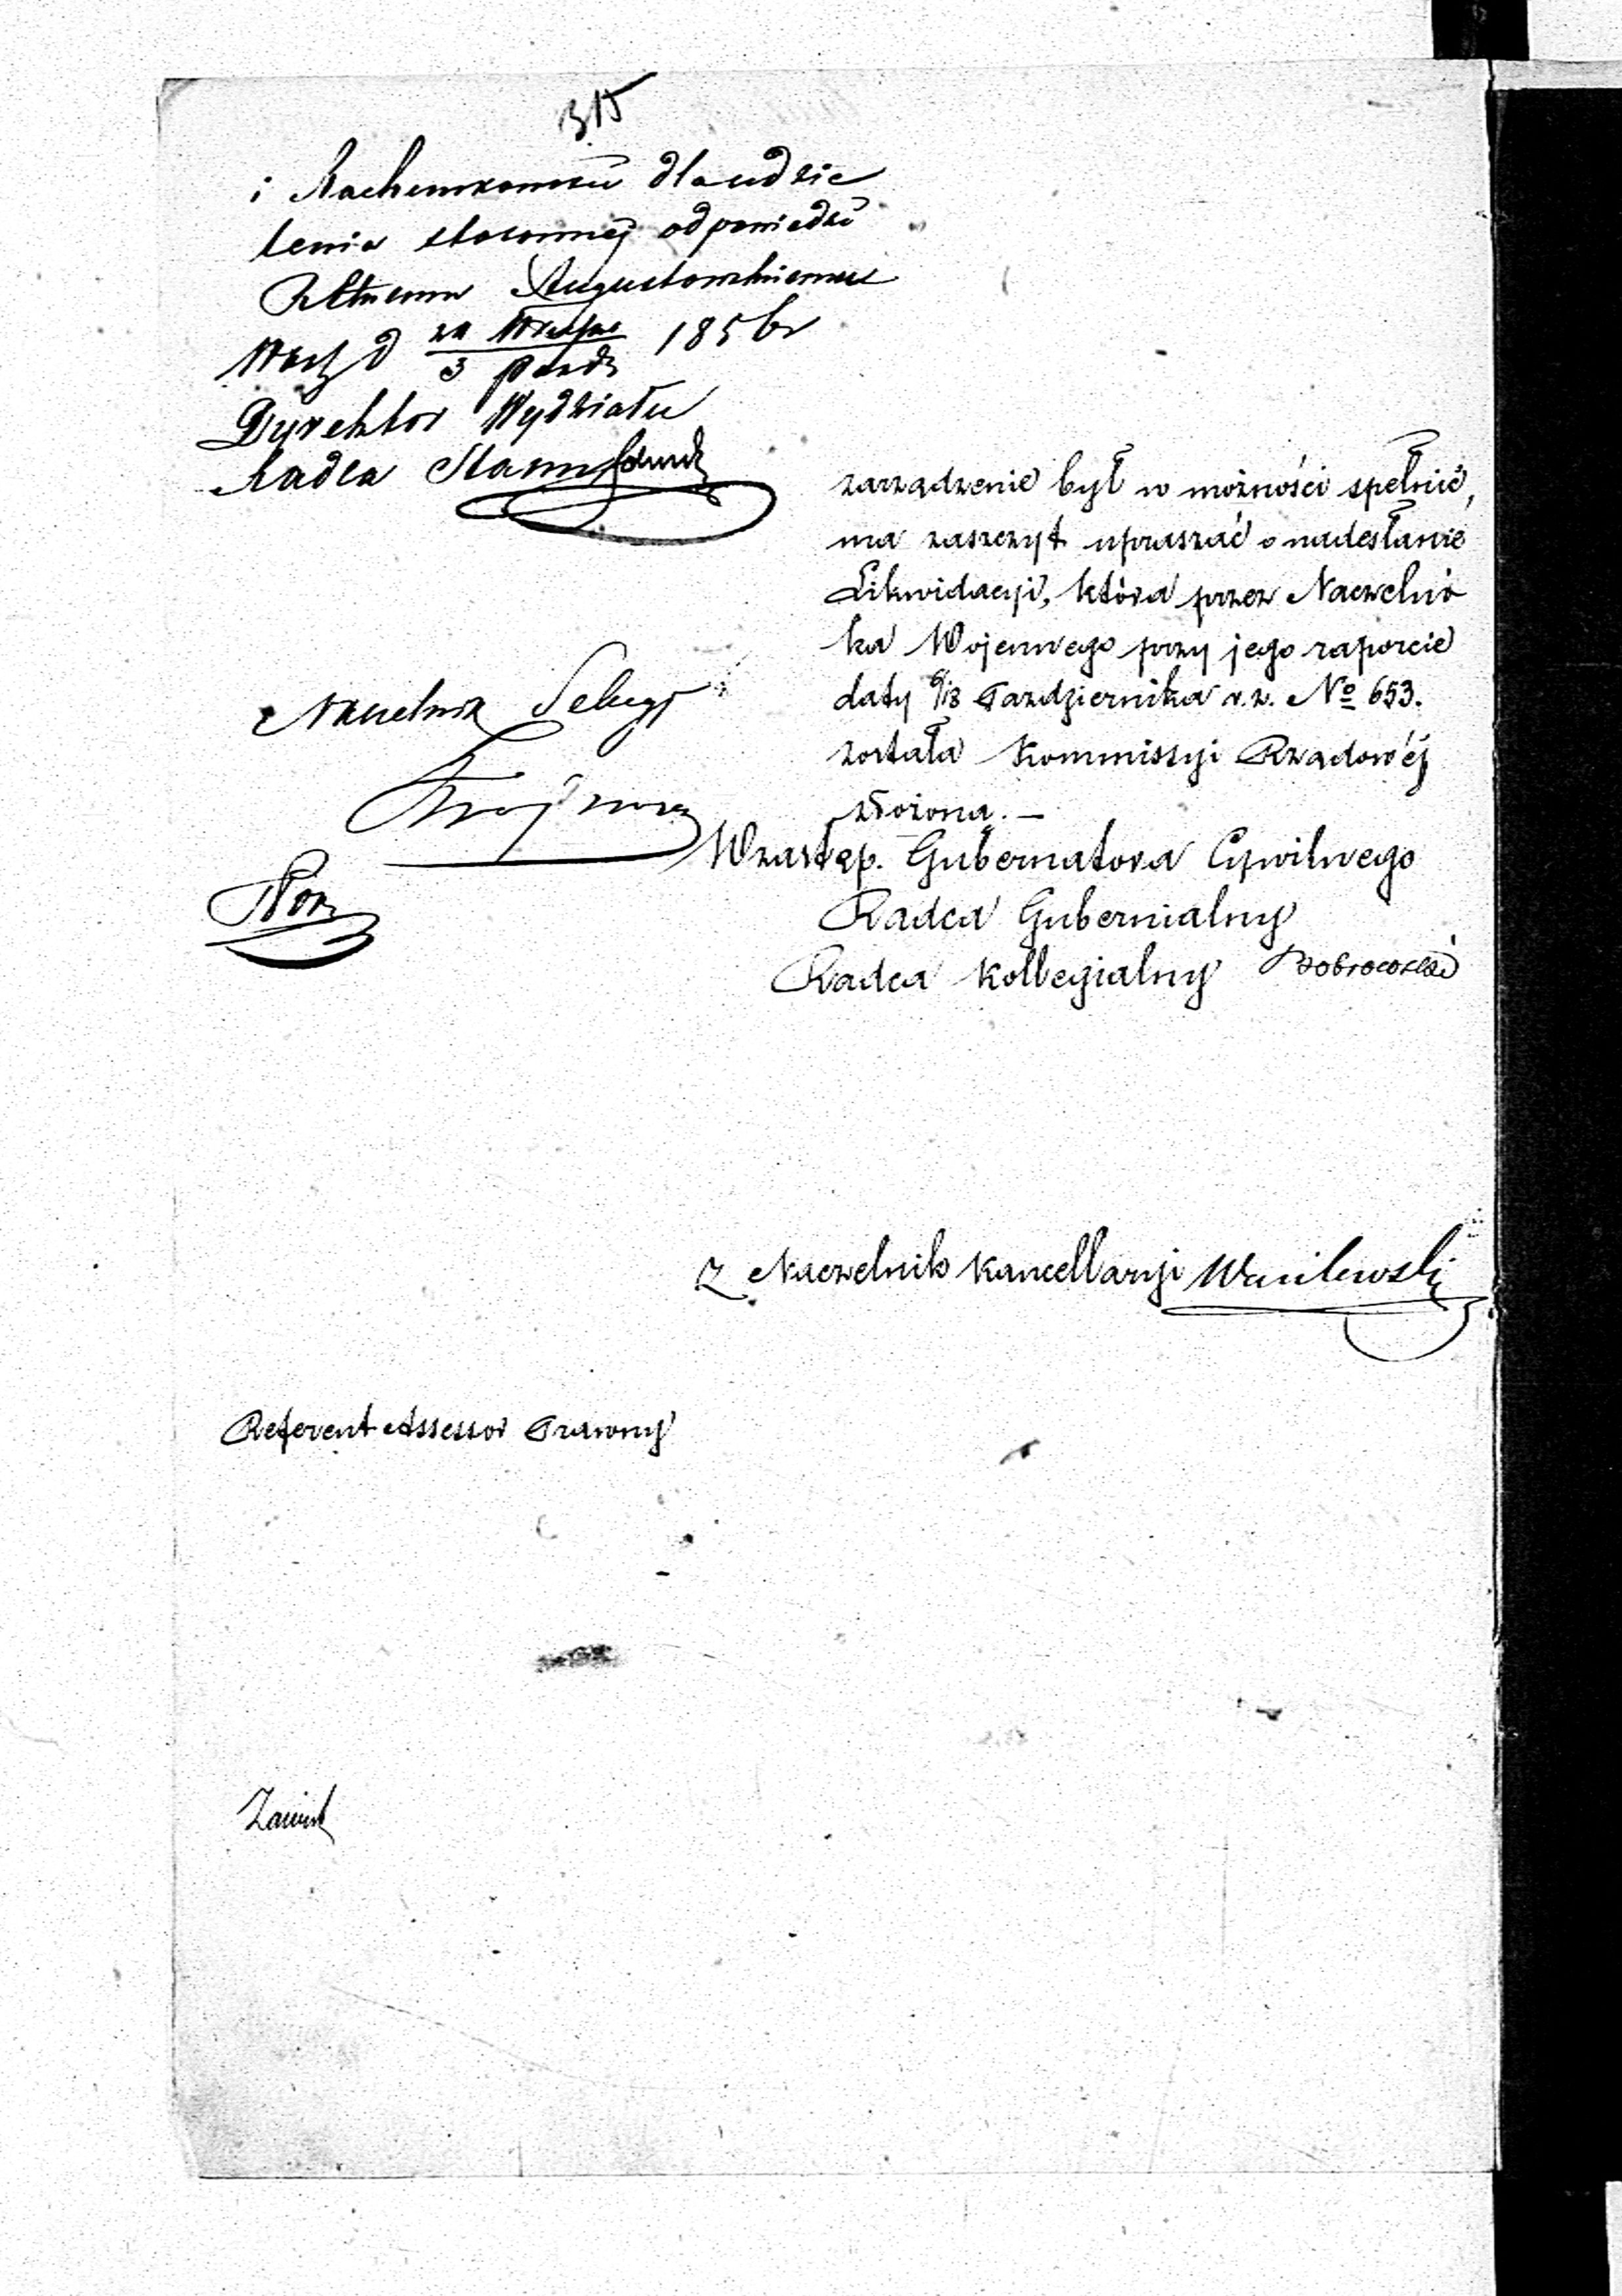 315
i Rachunkowości dla udzie
lenia stosownej odpowiedzi
Rządowi Augustowskiemu
Warsz d 21 Wrześ / 3 Paźdz 1856 r
Dyrektor Wydziału
Radca Stanu
zarządzenie był w możności spełnić,
ma zaszczyt upraszać o nadesłanie
Likwidacyi, która przez Naczelni
ka Wojennego przy jego raporcie
daty 1/13 Października r. z. No 653.
została Kommissyi Rządowéj
złożona. —
Naczelnik Sekcyi
W zastęp. Gubernatora Cywilnego
Radca Gubernialny
Radca Kollegialny
Z Naczelnik Kancellaryi Wasilewski
Referent Assessor Prawny